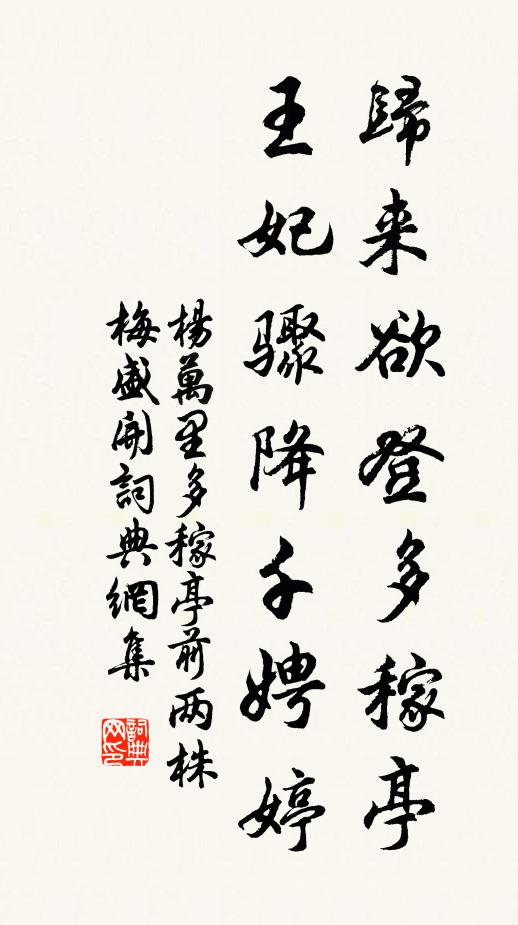 歸来欲登多稼亭
王妃驟降千娉婷
楊萬里多稼亭前两株
梅盛開詞典網集
詞典
网印